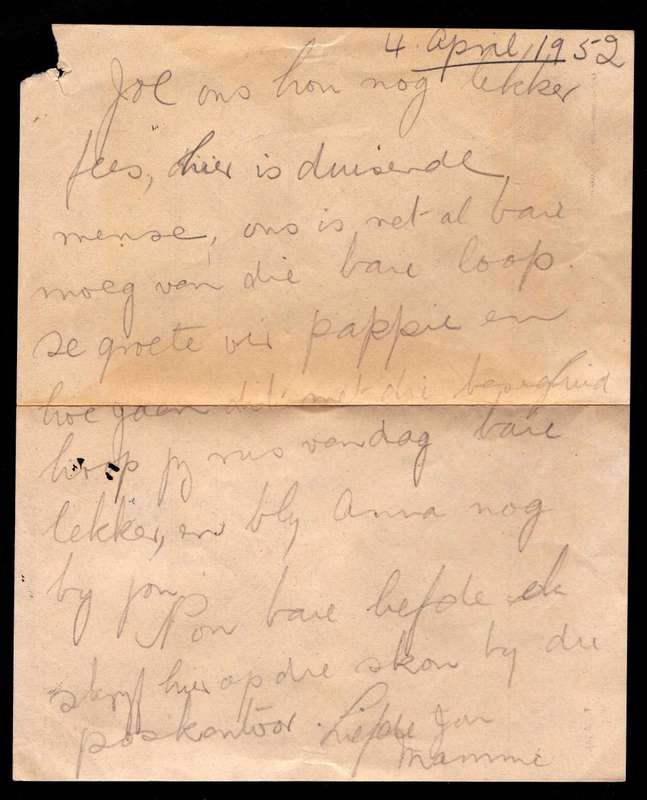 4 April 1952
Joe ons hou nog lekker
fees, hier is duisende
mense, ons is net al baie
moeg van die baie loop.
Sê groete vir pappie en
hoe gaan dit met die besigheid
hoop jy rus vandag baie
lekker, en bly Anna nog
by jou.
Nou baie liefde ek
skryf hier op die skou by die
poskantoor. Liefde Jou
Mammie